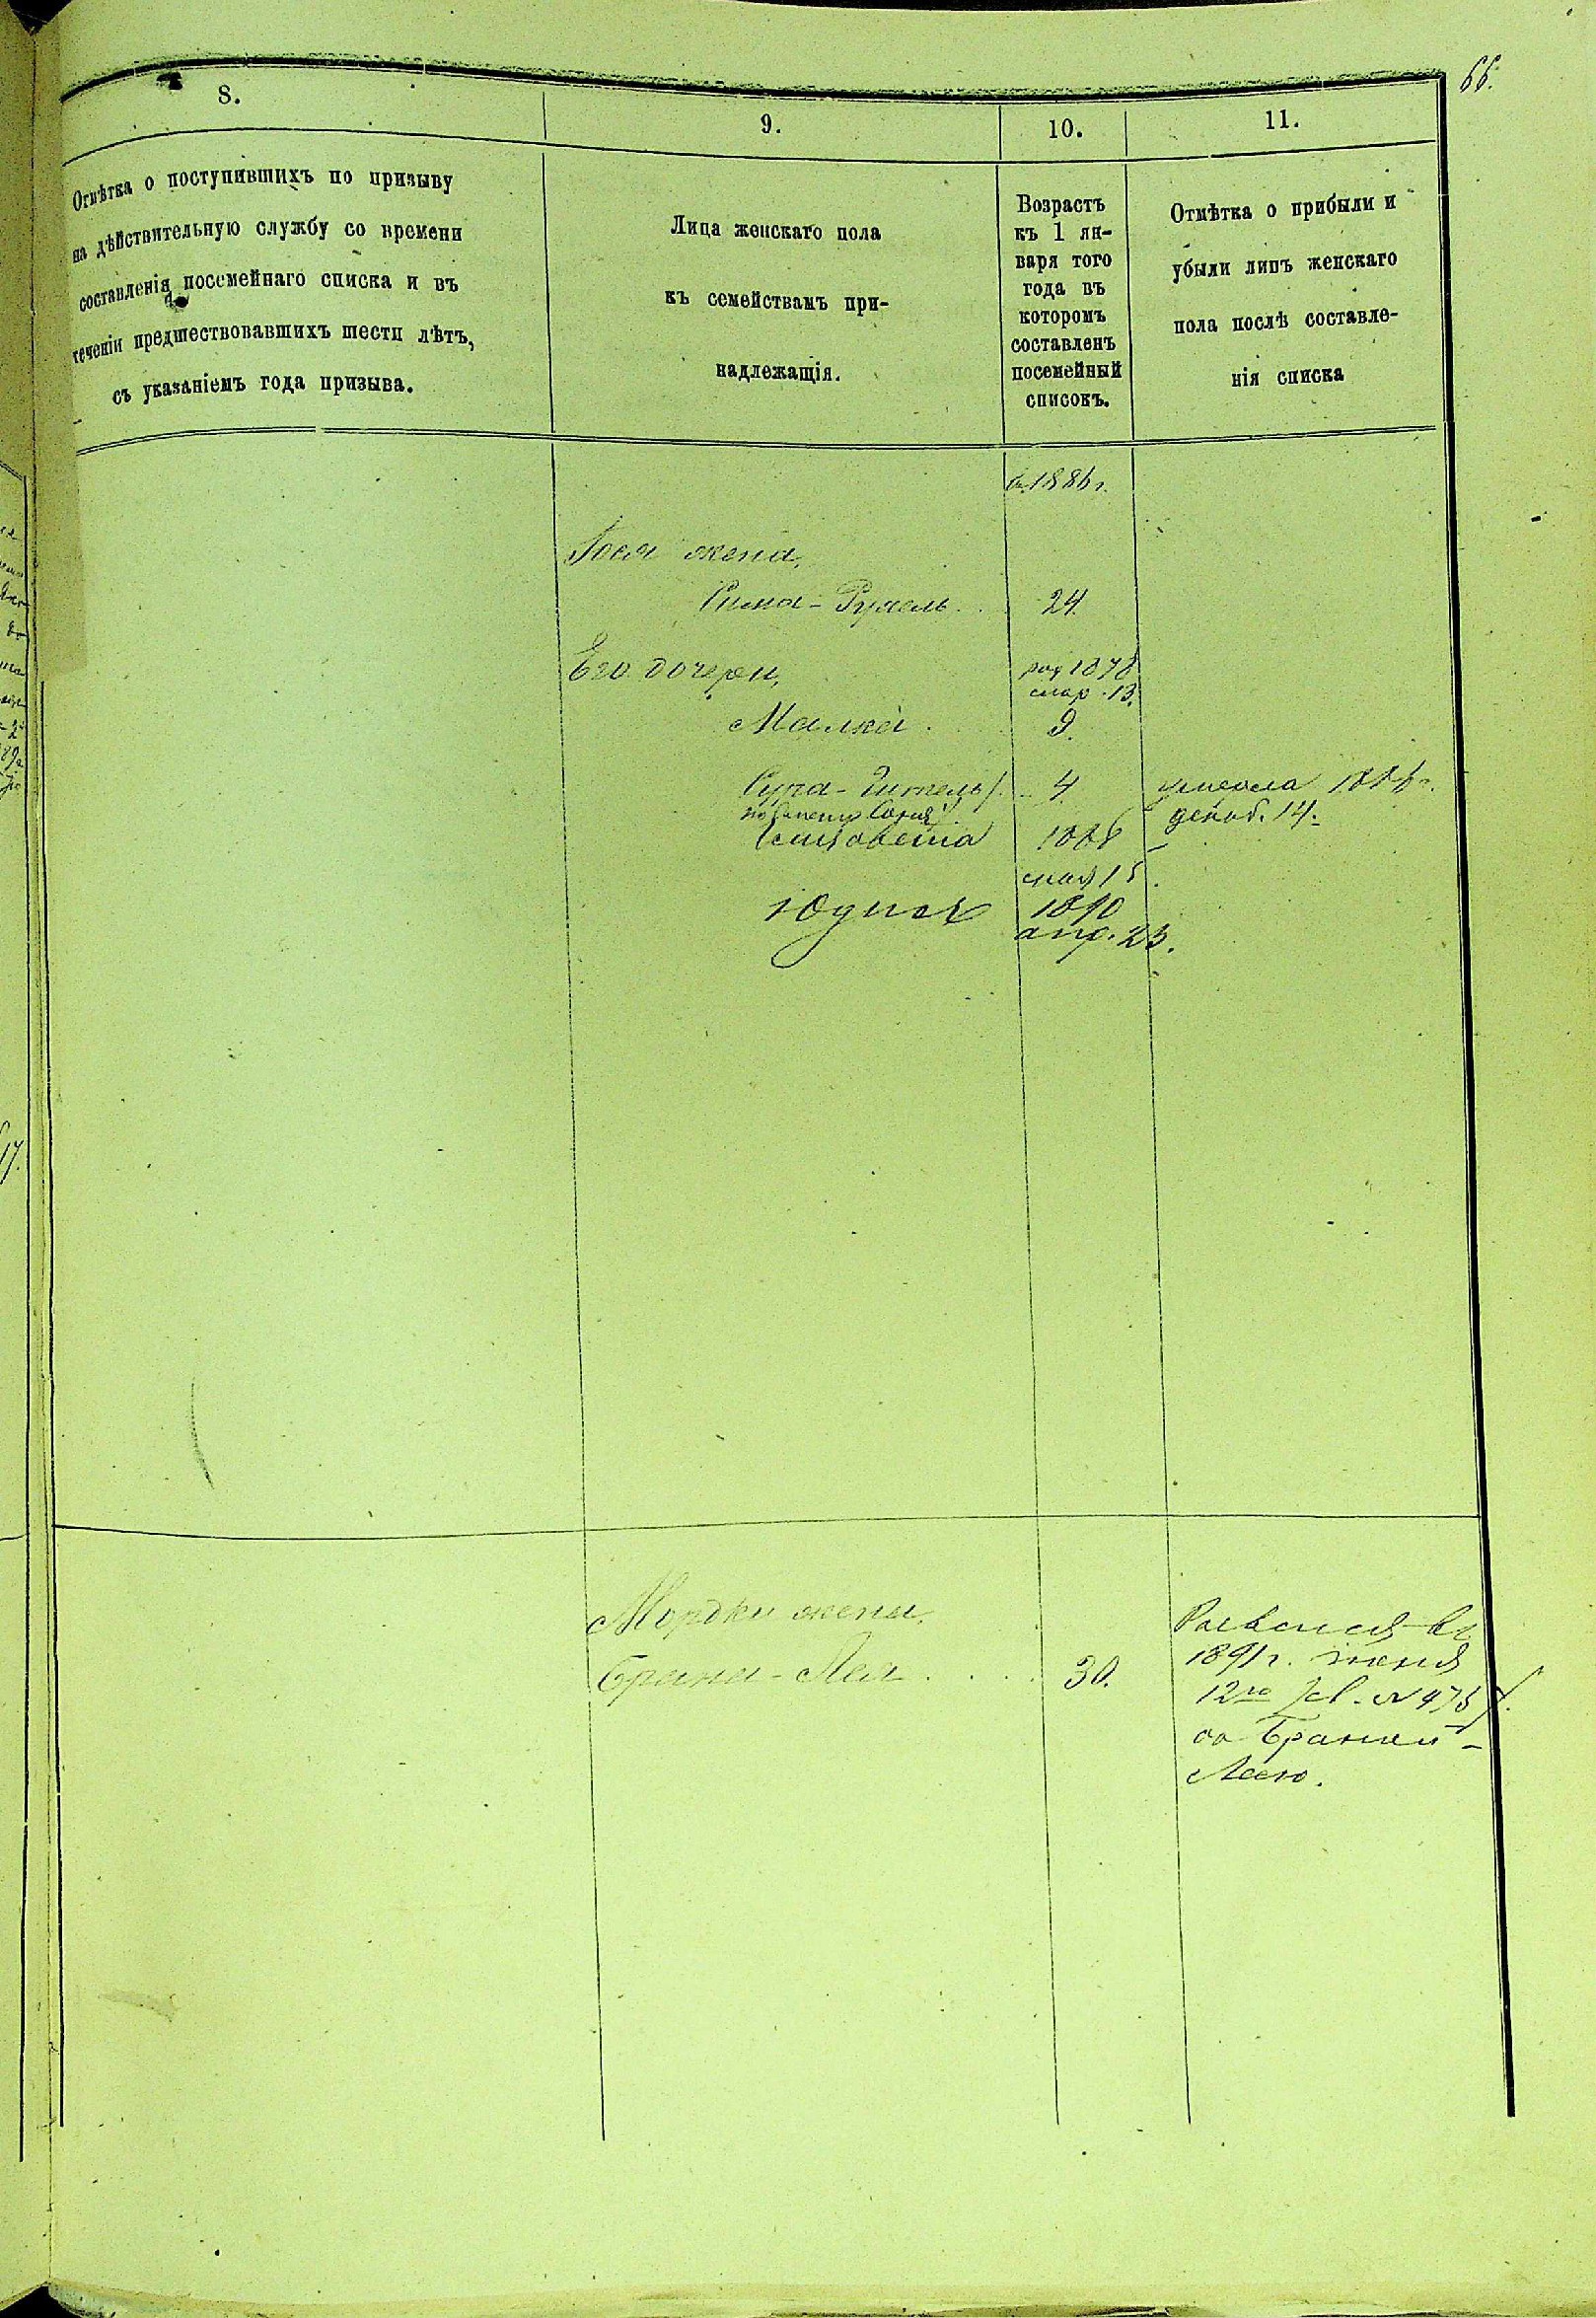 66.
8.
9.
10.
11.
Отмѣтка о поступившихъ по призыву
на дѣйствительную службу со времени
составленія посемейнаго списка и въ
теченіи предшествовавшихъ шести лѣтъ,
съ указаніемъ года призыва.
Лица женскаго пола
къ семействамъ при-
надлежащія.
Возрастъ
къ 1 ян-
варя того
года въ
которомъ
составленъ
посемейный
списокъ.
Отмѣтка о прибыли и
убыли лицъ женскаго
пола послѣ составле-
нія списка
1886 г.
жена,
Рухель 24.
Его дочери, 1878
мар. 13.
Малка 9.
Сура-Гитель 4. умерла 188
декаб. 14.
Елизавета 1888
мая 15.
Юдися 1890
апр. 23.
Мордки жена,
Брана-Лея 30.
1891 г. июня
12го
Браною-
Леею.